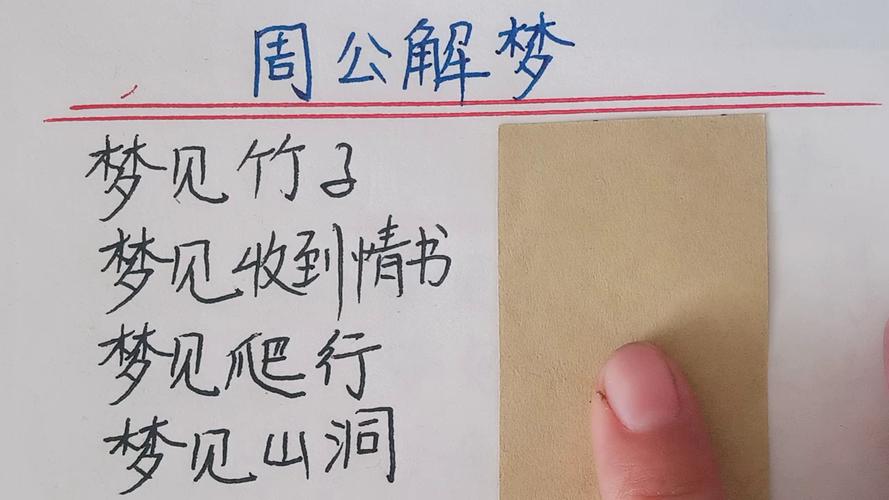 周公解梦
梦见竹子
梦见收到情书
梦见爬行
梦见山洞